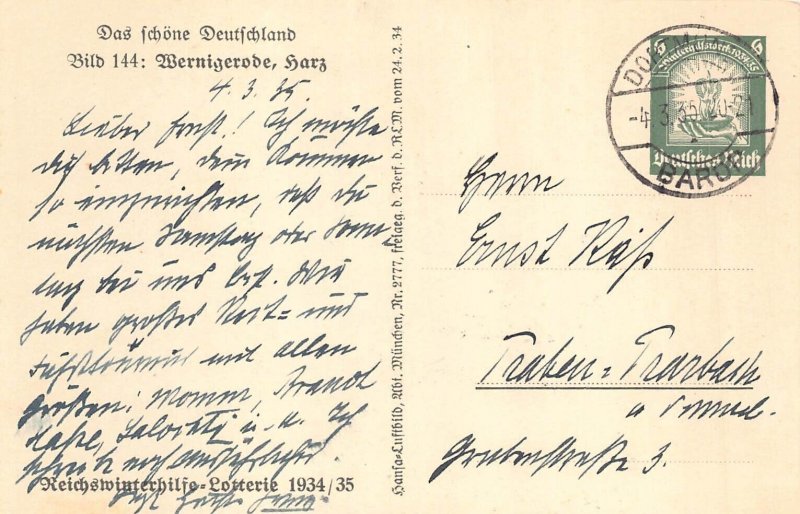 Das schöne Deutschland
Bild 144: Wernigerode, Harz
4. 3. 35
Lieber Ernst! Ich möchte
dich bitten, dein Kommen
so einzurichten, daß du
nächsten Samstag oder Sonn-
tag bei uns bist. Wir
haben großes Reit- und
Fahrturnier mit allen
Größen: Momm, Brandt
Hasse, u. a. Ich
schreibe noch ausführlicher.
Reichswinterhilfe-Lotterie 1934/35
Hansa-Luftbild, Abt. München, Nr. 2777, freigeg. d. Verf. d. R.L.M. vom 24. 2. 34
6 6
Winterhilfswerk 1934/35
Deutsches Reich
DORTMUND
-4.3.35 20-21
BAROP
Herrn
Ernst Käß
Traben-Trarbach
a Mosel.
Grabenstraße 3.